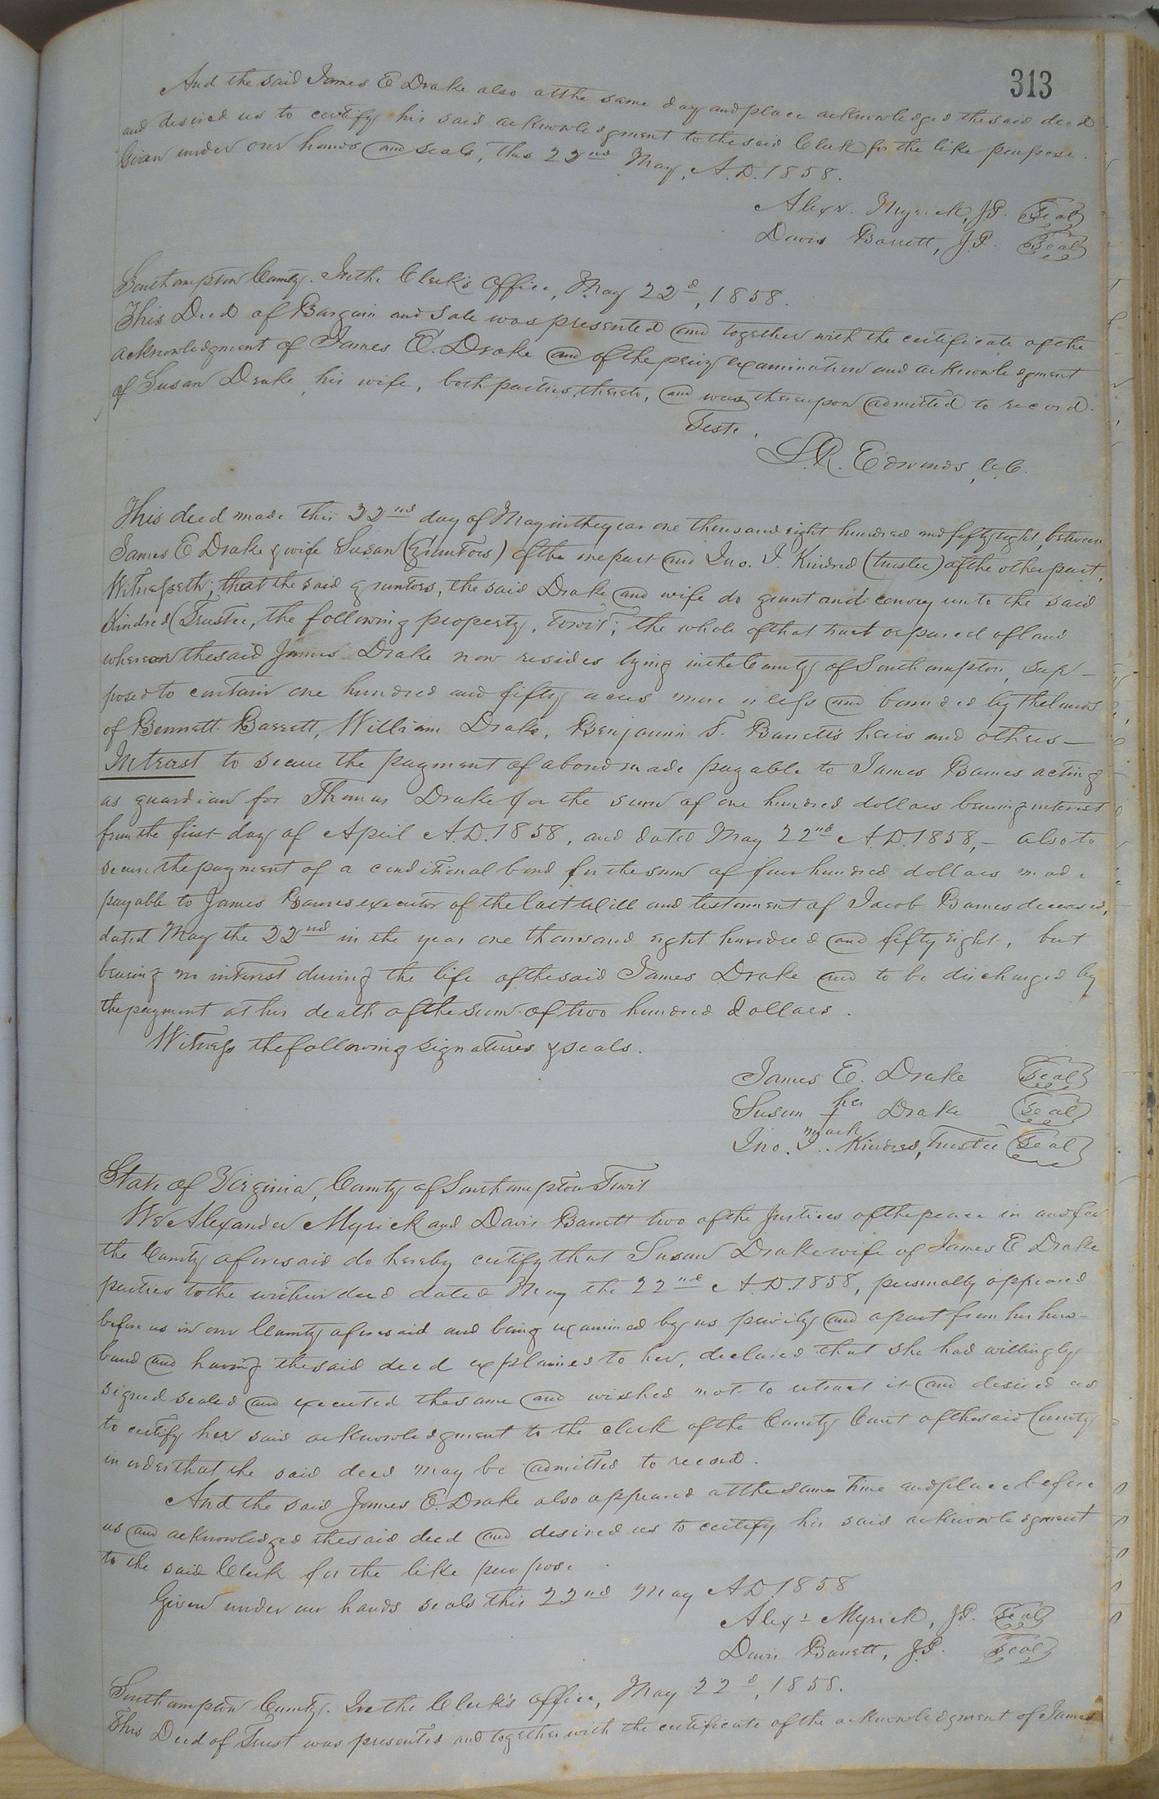 313
And the said James E Drake also at the same day and place acknowledged the said deed
and desired us to certify his said acknowledgment to the said Clerk for the like purpose.
Given under our hands and seals, this 22nd May, A.D. 1858.
Alexr. Myrick, J.P. Seal
Davis Barrett, J.P. Seal
Southampton County. In the Clerk's Office, May 22d, 1858.
This Deed of Bargain and Sale was presented and together with the certificate of the
acknowledgment of James E. Drake and of the privy examination and acknowledgment
of Susan Drake, his wife, both parties thereto, and was thereupon admitted to record.
Teste,
L.R. Edwards, C.C.
This deed made this 22nd day of May in the year one thousand eight hundred and fifty eight, between
James E Drake & wife Susan (Grantors) of the one part and Jno. J. Kindred (trustee) of the other part,
Witnesseth; that the said grantors, the said Drake and wife do grant and convey unto the said
Kindred (Trustee, the following property, towit; the whole of that tract or parcel of land
whereon the said James Drake now resides lying in the County of Southampton, sup-
posed to contain one hundred and fifty acres more or less and bounded by the lands
of Bennett Barrett, William Drake, Benjamin F. Barrett's heirs and others—
In trust to secure the payment of a bond made payable to James Barnes acting
as guardian for Thomas Drake for the sum of one hundred dollars bearing interest
from the first day of April A.D. 1858, and dated May 22nd A.D. 1858,— also to
secure the payment of a conditional bond for the sum of four hundred dollars made
payable to James Barnes executor of the last Will and testament of Jacob Barnes deceased,
dated May the 22nd in the year one thousand eight hundred and fifty eight, but
bearing no interest during the life of the said James Drake and to be discharged by
the payment at his death of the sum of two hundred dollars.
Witness the following signatures & seals.
James E. Drake Seal
Susan her Drake Seal
mark
Jno. J. Kindred, Trustee Seal
State of Virginia, County of Southampton Towit
We Alexander Myrick and Davis Barrett two of the Justices of the peace in and for
the County aforesaid do hereby certify that Susan Drake wife of James E Drake
parties to the within deed dated May the 22nd A.D. 1858, personally appeared
before us in our County aforesaid and being examined by us privily and apart from her hus-
band and having the said deed explained to her, declared that she had willingly
signed sealed and executed the same and wished not to retract it and desired us
to certify her said acknowledgment to the clerk of the County Court of the said County
in order that the said deed may be admitted to record.
And the said James E. Drake also appeared at the same time and place before
us and acknowledged the said deed and desired us to certify his said acknowledgment
to the said Clerk for the like purpose.
Given under our hands seals this 22nd May A.D. 1858
Alexr Myrick, J.P. Seal
Davis Barrett, J.P. Seal
Southampton County. In the Clerk's office, May 22d, 1858.
This Deed of Trust was presented and together with the certificate of the acknowledgment of James